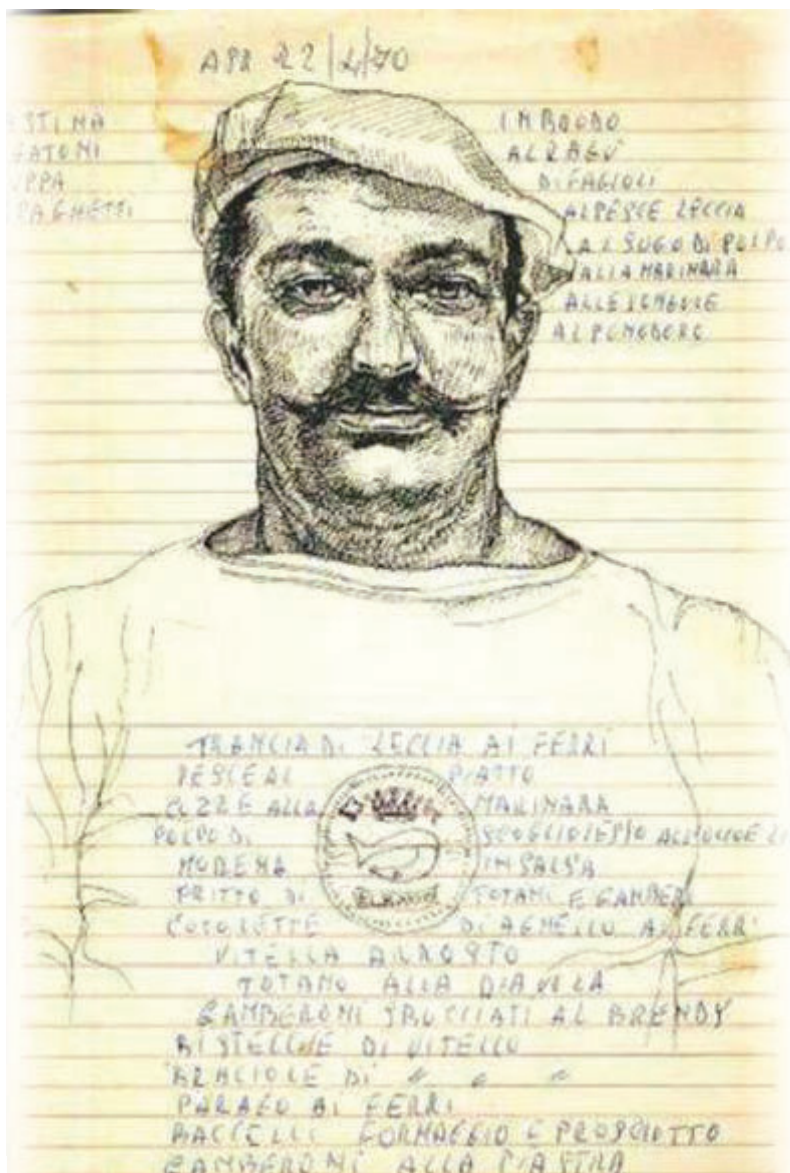 APR 22/4/70
STINA IN BRODO
GATONI AL RAGÙ
UPPA DI FAGIOLI
PAGHETTI AL PESCE LECCIA
AL SUGO DI POLPO
ALLA MARINARA
ALLE
AL POMODORO
TRANCIA DI LECCIA AI FERRI
PESCE AL PIATTO
COZZE ALLA MARINARA
POLPO DI SCOGLIO LESSO ALL'OLIO E
MURENA IN SALSA
FRITTO DI TOTANI E GAMBERI
COTOLETTE DI AGNELLO AI FERRI
VITELLA ARROSTO
TOTANO ALLA DIAVOLA
GAMBERONI BRUCIATI AL BRENDY
BISTECCHE DI VITELLO
BRACIOLE DI " " "
PARAGO AI FERRI
BACCELLI FORMAGGIO E PROSCIUTTO
GAMBERONI ALLA PIASTRA